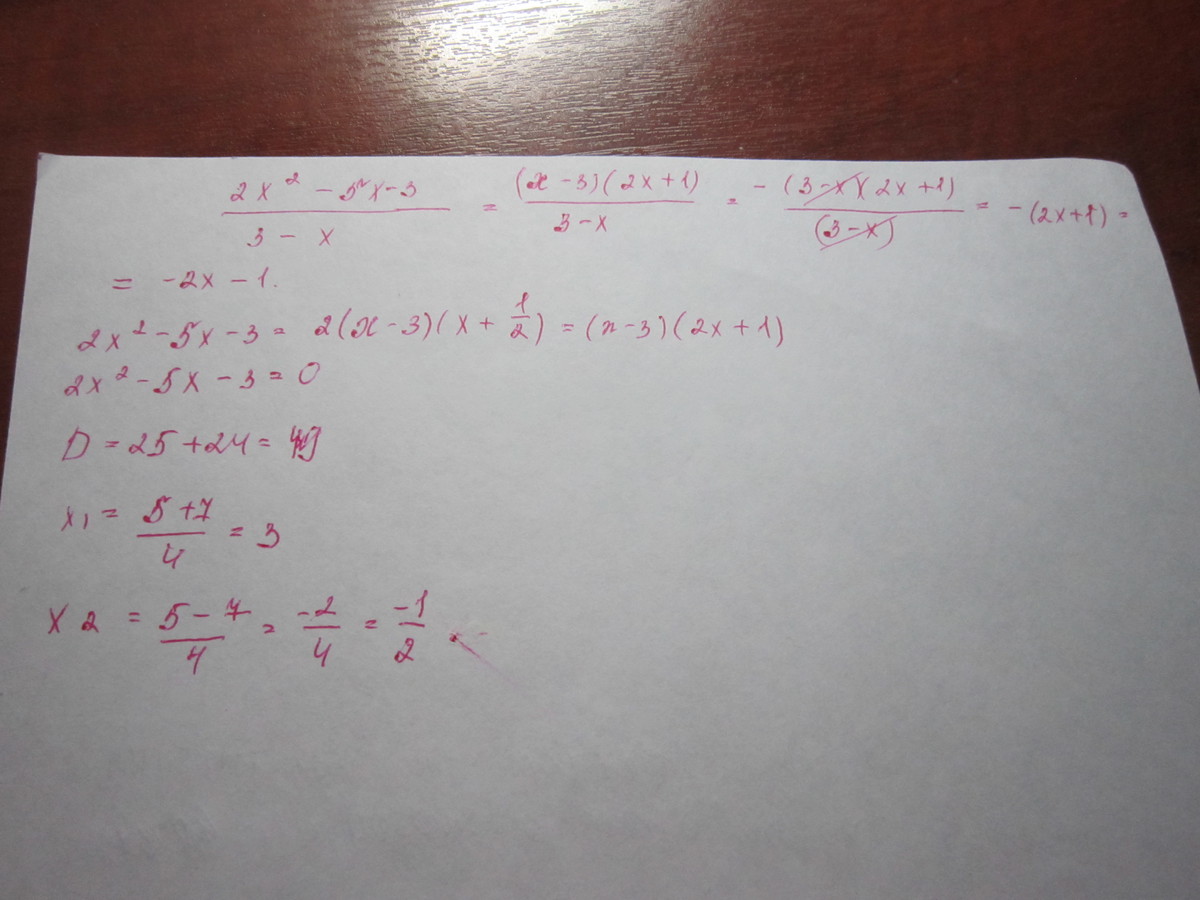 (2x² - 5x - 3)/(3 - x) = ((x - 3)(2x + 1))/(3 - x) = - ((3 - x)(2x + 1))/((3 - x)) = - (2x + 1) =
= -2x - 1.
2x² - 5x - 3 = 2(x - 3)(x + 1/2) = (x - 3)(2x + 1)
2x² - 5x - 3 = 0
D = 25 + 24 = 49
x₁ = (5 + 7)/4 = 3
x 2 = (5 - 7)/4 = -2/4 = -1/2.